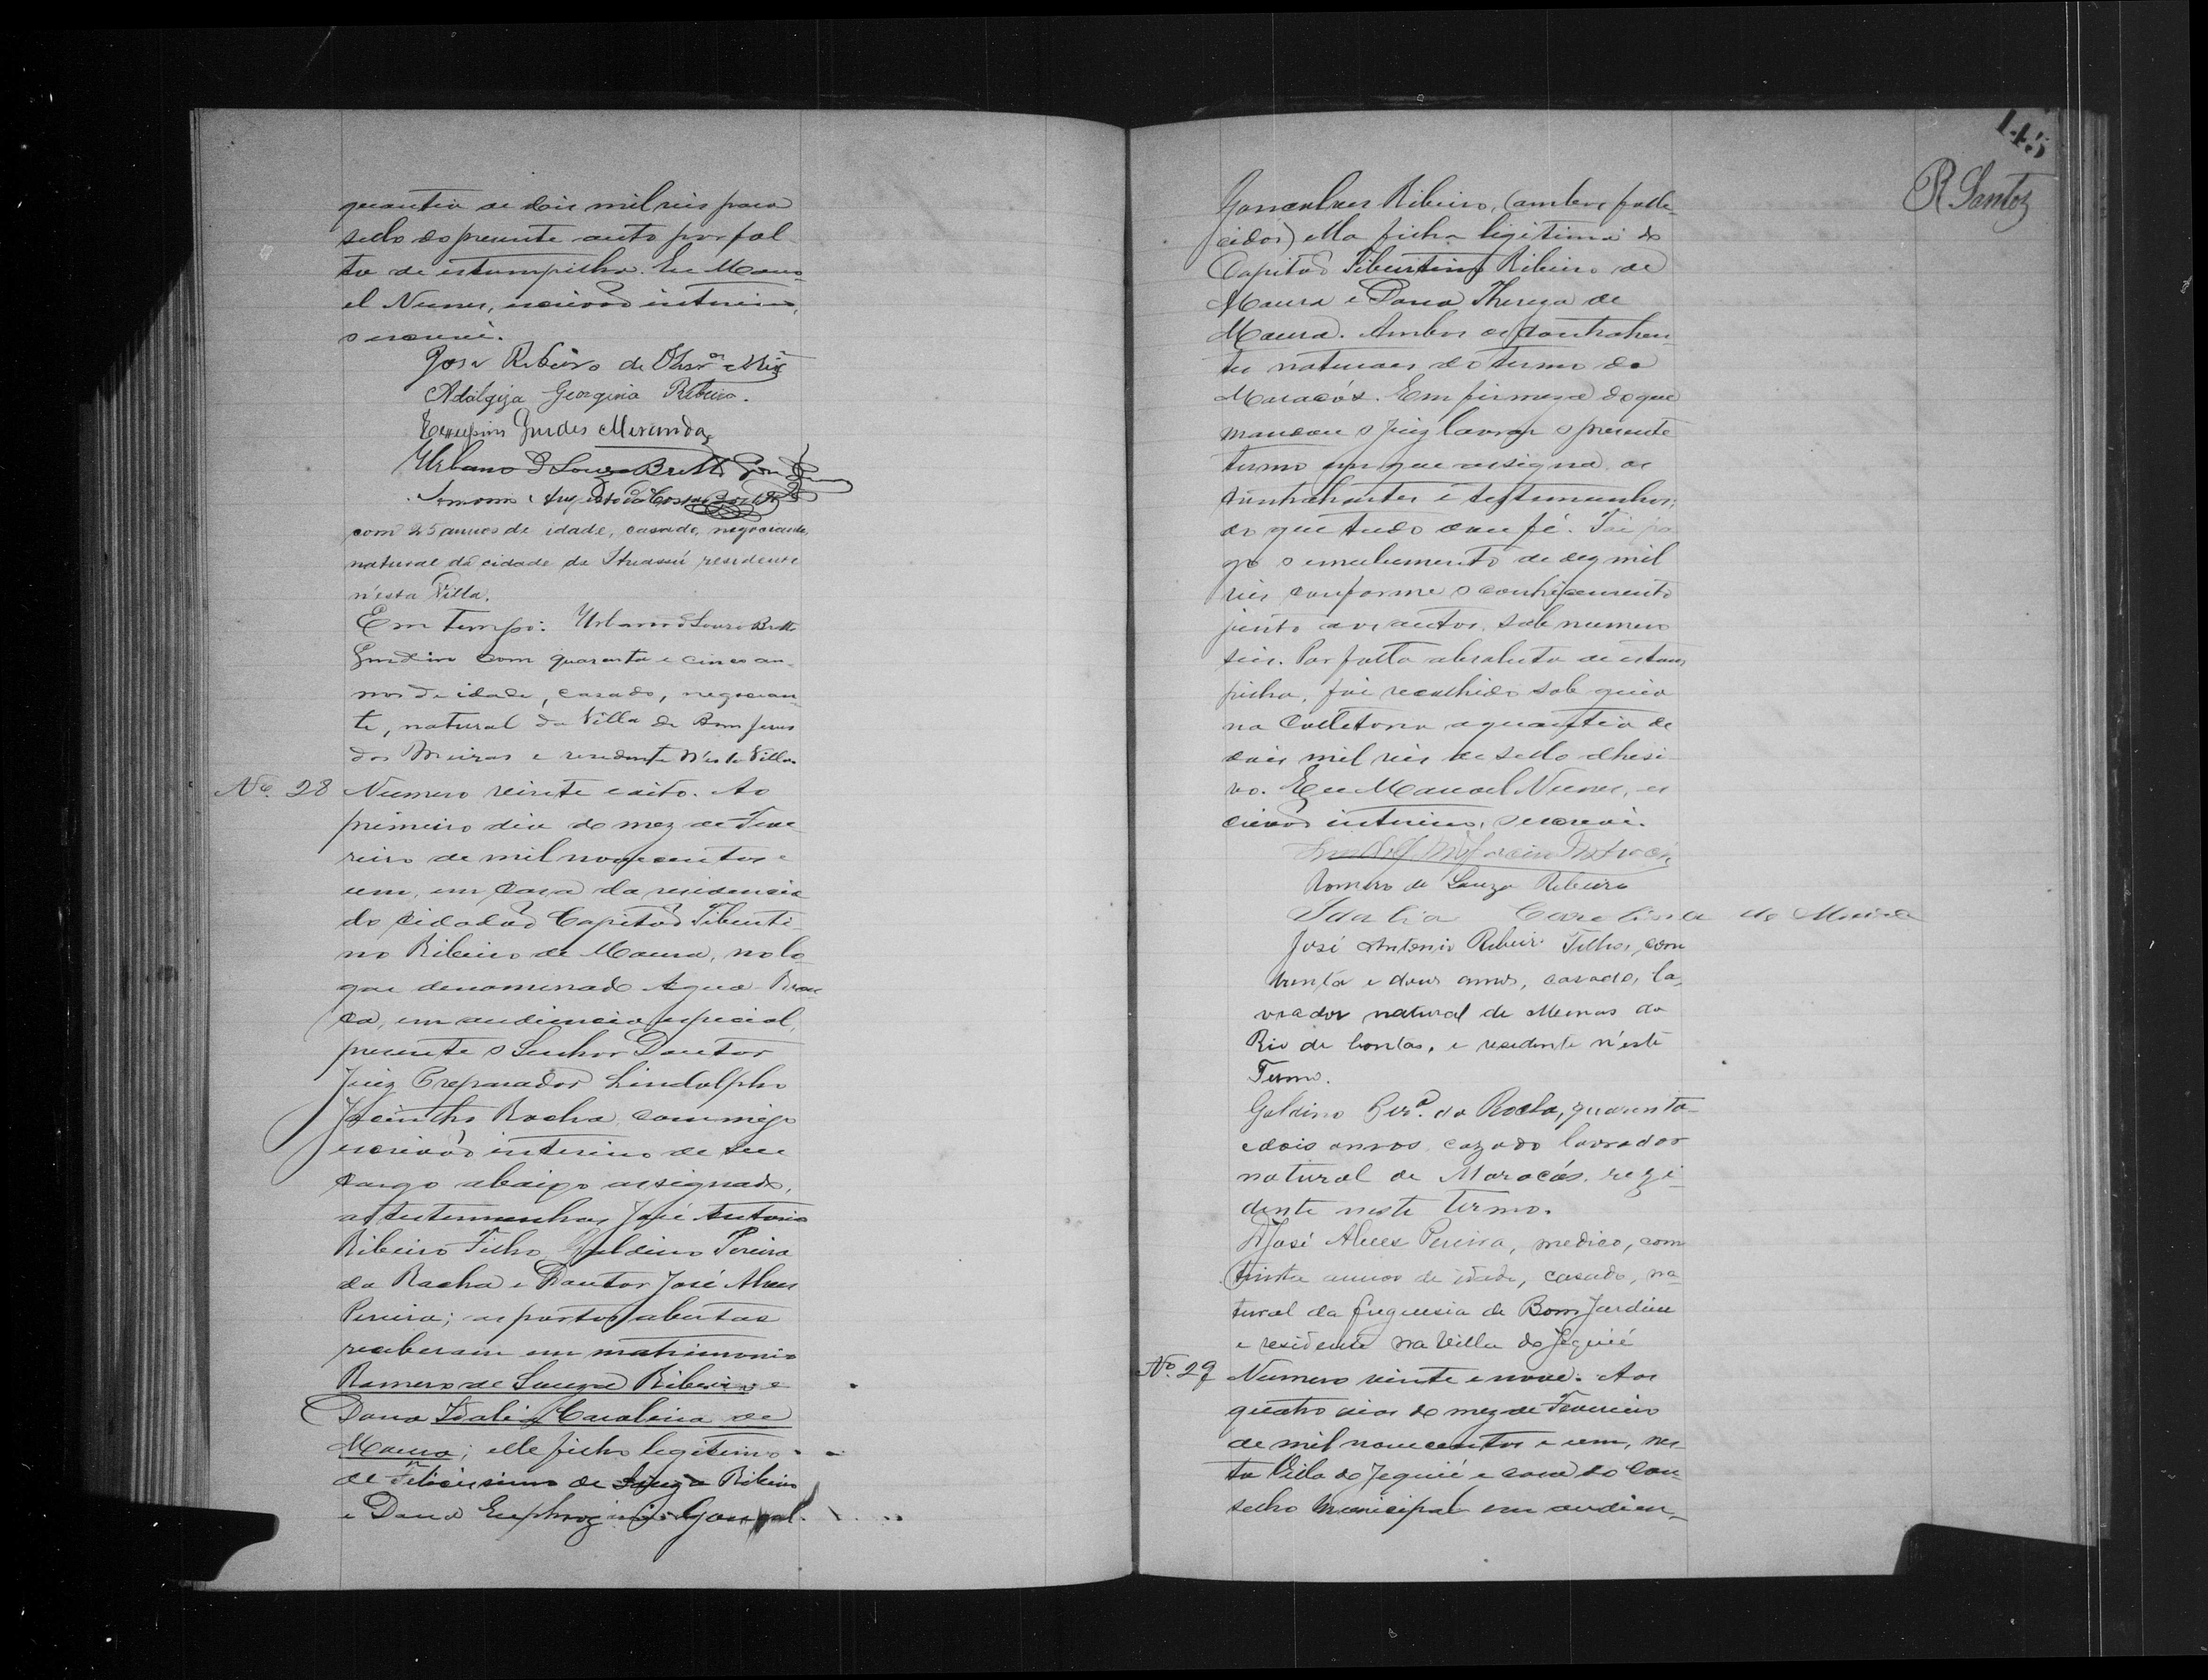 quantia de dois mil reis para
sello do presente auto por fal
ta de estampilha. Eu Mano
el Nunes, escrivão interino,
o escrevi.
José Ribeiro de
Adalgiza Georgina Ribeiro.
Guedes Miranda
Urbano de Souza Britto
Augusto da Costa
com 25 annos de idade, casado, negociante,
natural da cidade de Ituassú residente
n'esta Villa.
Em tempo: Urbano de Souza Britto
Gondim com quarenta e cinco an-
nos de idade, casado, negocian-
te, natural da Villa de Bom Jesus
dos Meiras e residente n'esta Villa.
No. 28 Numero vinte e oito. Ao
primeiro dia do mez de Feve
reiro de mil novecentos e
um, em casa da residencia
do cidadão Capitão Tiberti
no Ribeiro de Moura, no lo
gar denominado Agua Bran
ca, em audiencia especial,
presente o Senhor Doutor
Juiz Preparador Lindolpho
Jacintho Rocha, commigo
escrivão interino de seu
cargo abaixo assignado,
as testemunhas José Antonio
Ribeiro Filho, Galdino Pereira
da Rocha e Doutor José Alves
Pereira; as portas abertas
receberam em matrimonio
Romero de Souza Ribeiro e
Dona Idalia Carolina de
Moura; elle filho legitimo
de Felicissimo de Souza Ribeiro
e Dona Euphrozina Gonçal
145
R Santos
Gonçalves Ribeiro, (ambos falle-
cidos) ella filha legitima do
Capitão Tibertino Ribeiro de
Moura e Dona Thereza de
Moura. Ambos os contrahen
tes naturaes do termo de
Maracás. Em firmeza do que
mandou o Juiz lavrar o presente
termo em que assigna os
contrahentes e testemunhas;
do que tudo dou fé. Foi pa
go o emolumento de dez mil
reis conforme o conhecimento
junto aos autos, sob numero
seis. Por falta absoluta de estam
pilha, foi recolhido sob guia
na Colletoria a quantia de
dois mil reis de sello adhesi
vo. Eu Manoel Nunes, es
crivão interino, o escrevi.
Romero de Souza Ribeiro
Idalia Carolina de Moura
José Antonio Ribeiro Filho, com
trinta e dous annos, casado, la,
vrador natural de Minas do
Rio de Contas, e residente n'este
Termo.
Galdino Perª. da Rocha, quarenta
e dois annos, cazado lavrador
natural de Maracás, rezi-
dente neste termo.
Dr José Alves Pereira, medico, com
trinta annos de idade, casado, na-
tural da freguesia de Bom Jardim
e residente na Villa do Jequié
No. 29 Numero vinte e nove. Aos
quatro dias do mez de Fevereiro
de mil novecentos e um, nes
ta Villa do Jequié e casa do Con-
selho Municipal em audien-